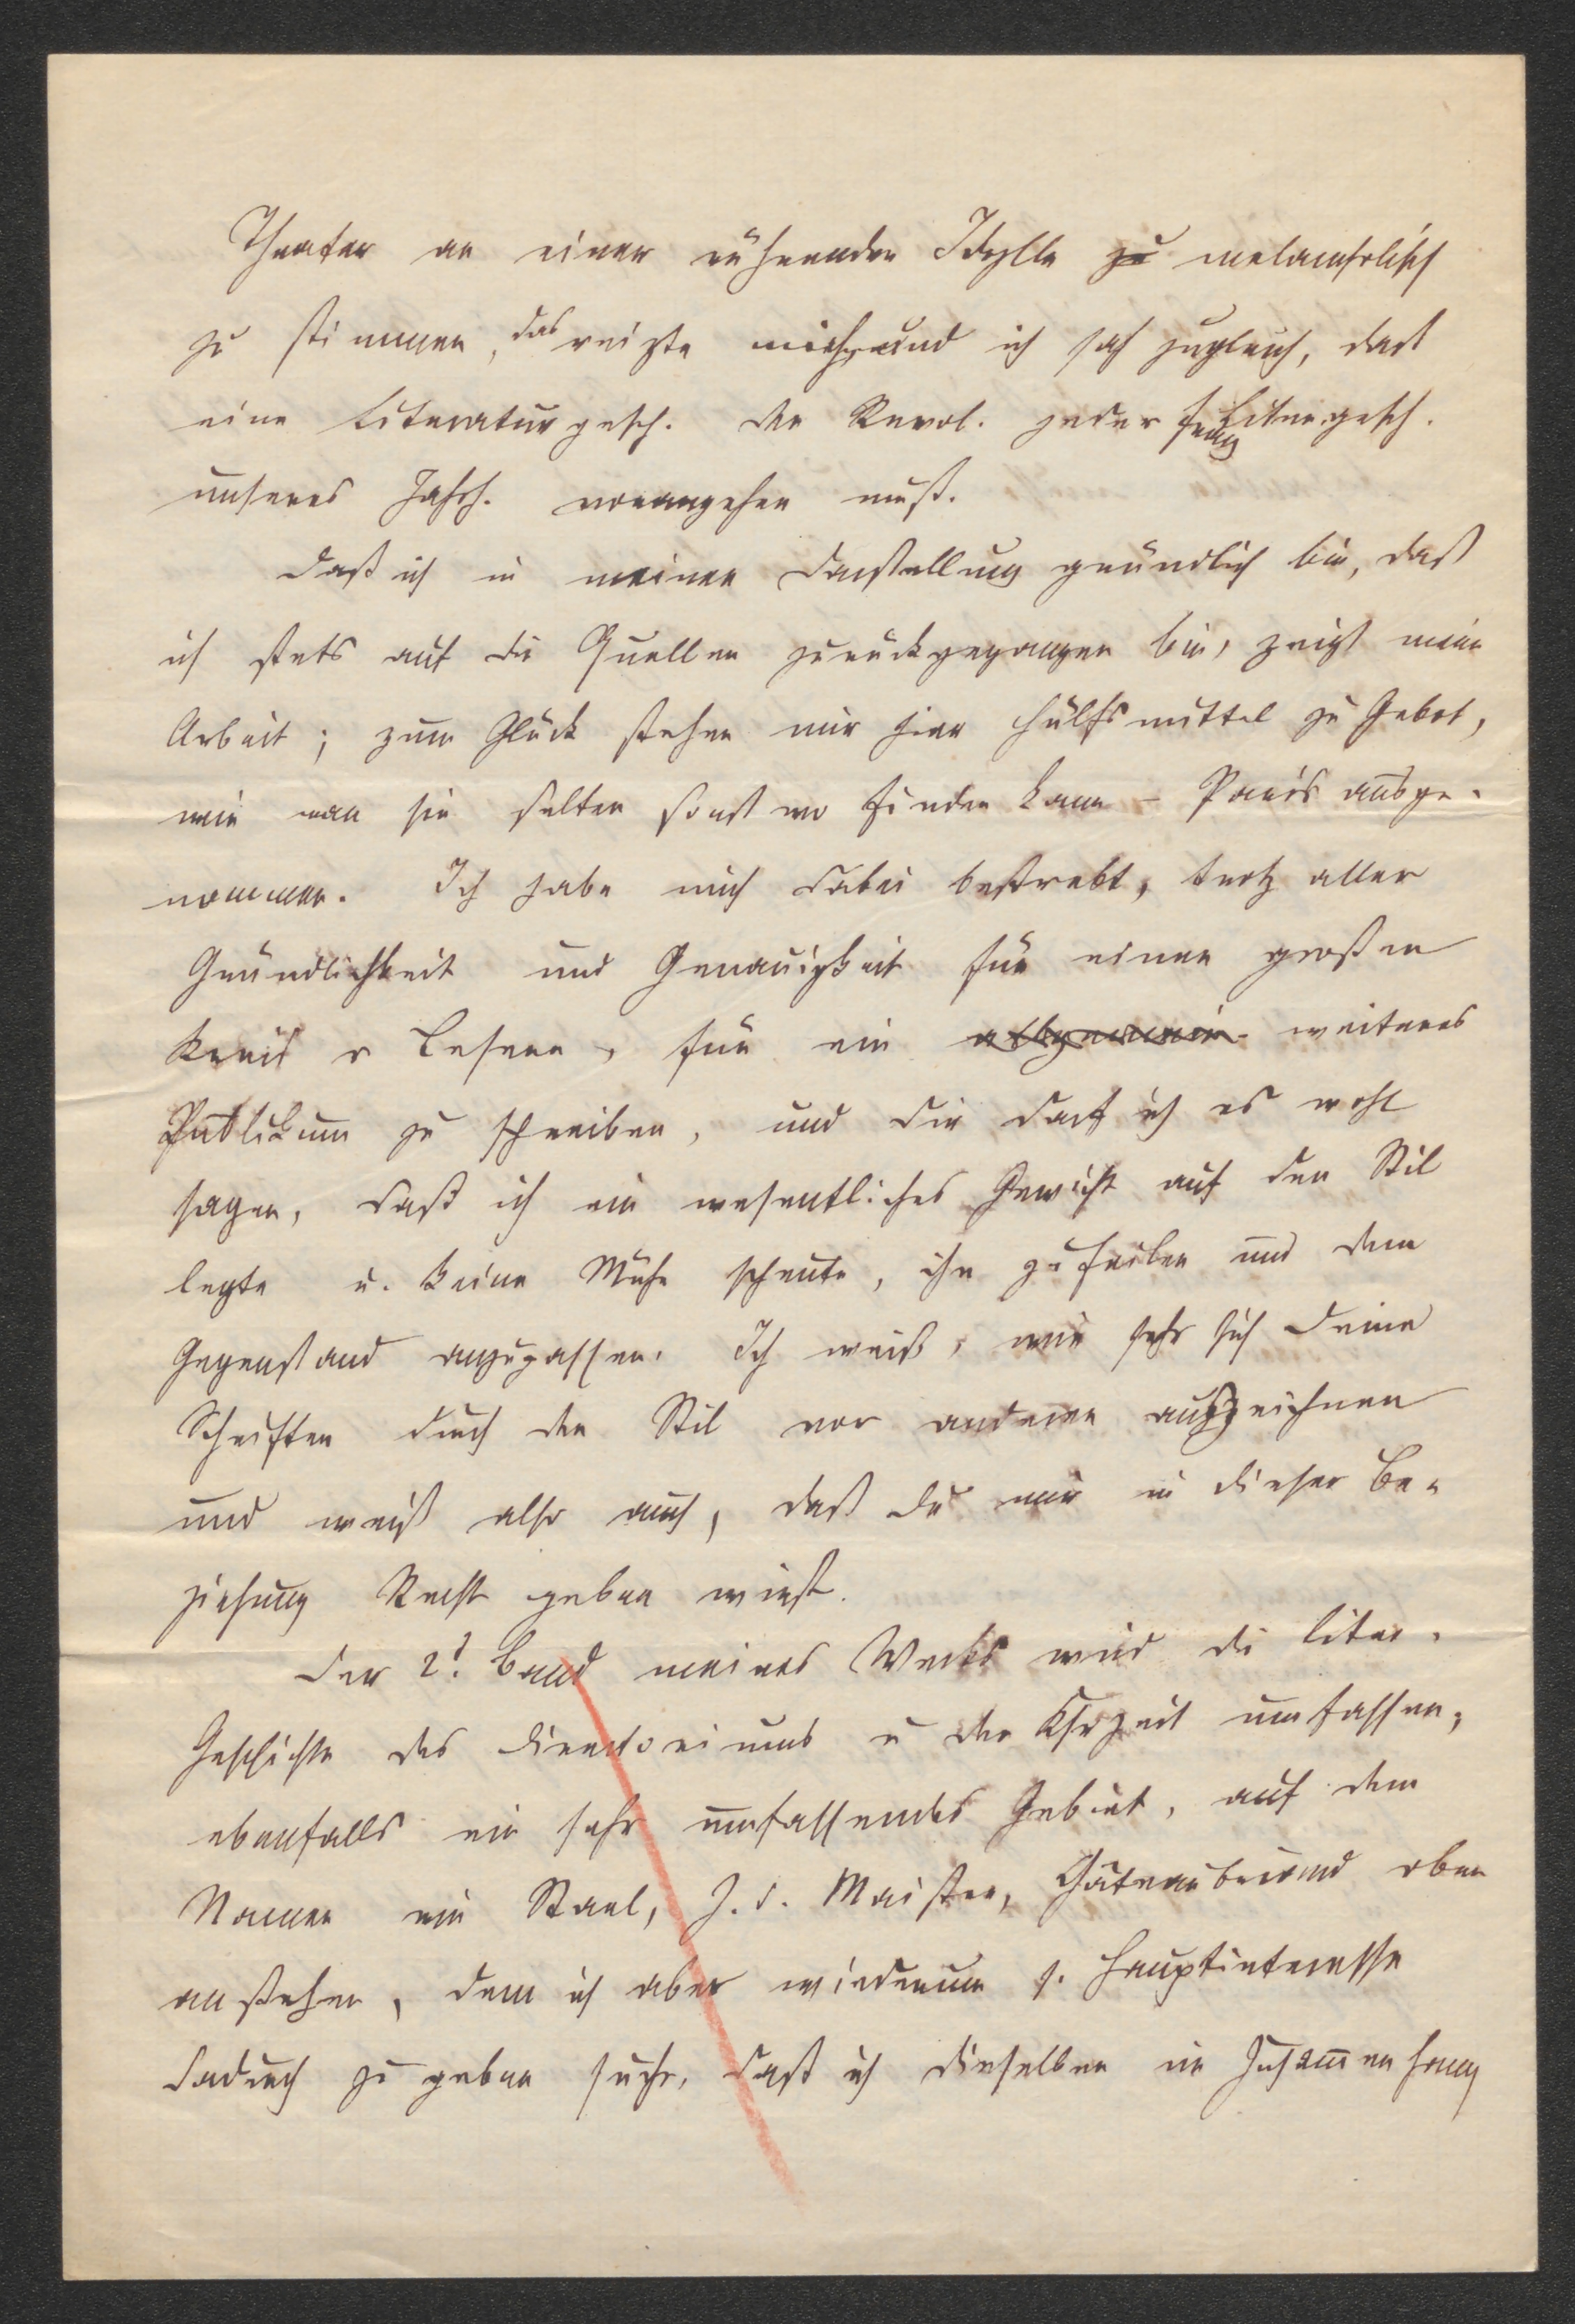 Theater an einer rührenden Idylle zu melancholisch
zu stimmen, das reizte mich, und ich sah zugleich, daß
eine Literaturgesch. der Revol. jeder franz Liter.gesch.
unseres Jahrh. vorangehen muß.
Daß ich in meiner Darstellung gründlich bin, daß
ich stets auf die Quellen zurückgegangen bin, zeigt meine
Arbeit; zum Glück stehen mir hier Hülfsmittel zu Gebot,
wie man sie selten sonst wo finden kann – Paris ausge-
nommen. Ich habe mich dabei bestrebt, trotz aller
Gründlichkeit und Genauigkeit für einen großen
Kreis v Lesern, für ein allgemein weiteres
Publikum zu schreiben, und Dir darf ich es wohl
sagen, daß ich ein wesentliches Gewicht auf den Stil
legte u. keine Mühe scheute, ihn zu feilen und dem
Gegenstand anzupassen. Ich weiß, wie sehr sich Deine
Schriften durch den Stil vor anderen auszeichnen
und weiß also auch, daß Du mir in dieser Be-
ziehung Recht geben wirst.
Der 2t. Band meines Werks wird die liter.
Geschichte des Directoriums u der Ksrzeit umfassen;
ebenfalls ein sehr umfassendes Gebiet, auf dem
Namen wie Stael, J. d. Maistre, Châteaubriand oben
anstehen, dem ich aber wiederum s. Hauptinteresse
dadurch zu geben suche, daß ich dieselben im Zusammenhang